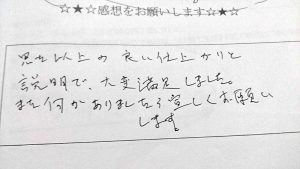 ☆★☆感想をお願いします☆★☆
思った以上の良い仕上がりと
説明で、大変満足しました。
また何かありましたら宜しくお願い
します。